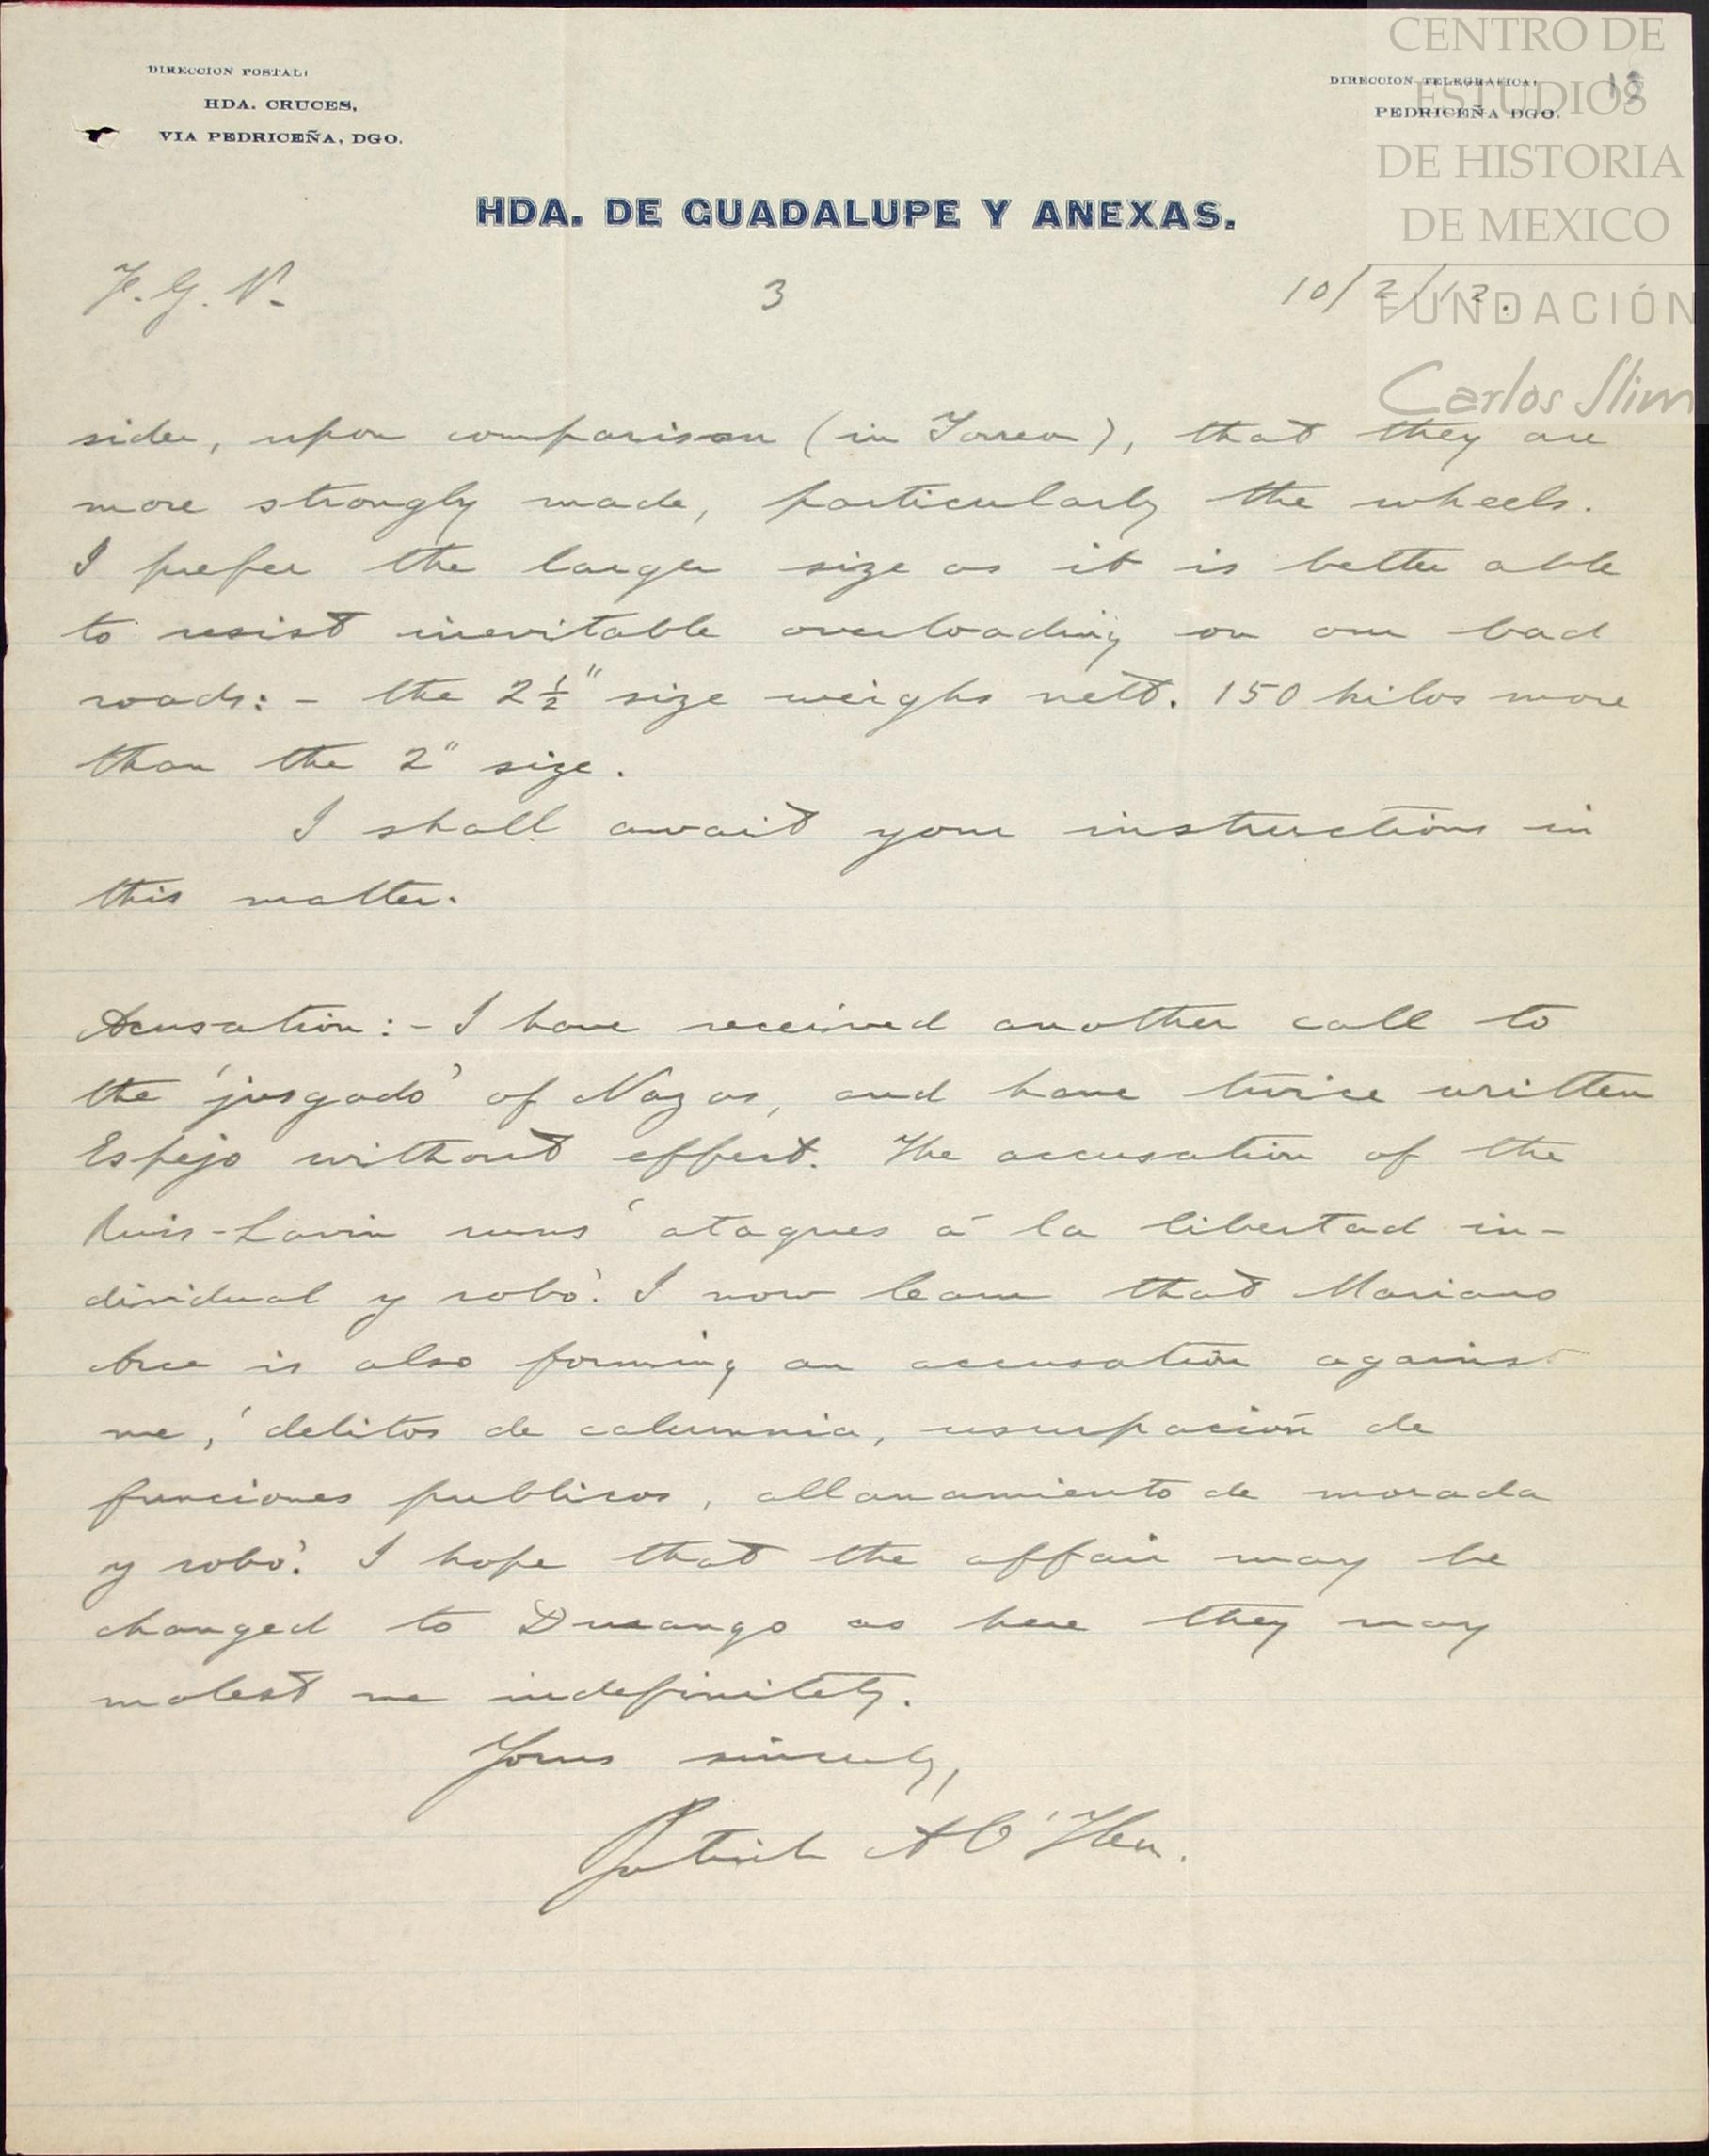 CENTRO DE
ESTUDIOS
DE HISTORIA
DE MEXICO
FUNDACIÓN
Carlos Slim
DIRECCION POSTAL:
HDA. CRUCES,
VIA PEDRICEÑA, DGO.
DIRECCION TELEGRAFICA:
PEDRICEÑA DGO.
HDA. DE GUADALUPE Y ANEXAS.
F. G. P. 3 10/2/12.
sider, upon comparison (in Torreon), that they are
more strongly made, particularly the wheels.
I prefer the larger size as it is better able
to resist inevitable overloading on our bad
roads: - the 2½" size weighs nett. 150 kilos more
than the 2" size.
I shall await your instructions in
this matter.
Acusation: - I have received another call to
the 'jusgado' of Nazas, and have twice written
Espejo without effect. The accusation of the
Ruis-Lavin runs 'ataques á la libertad in-
dividual y robo'. I now learn that Mariano
Arce is also forming an accusation against
me, 'delitos de calumnia, usurpación de
funciones publicas, allanamiento de morada
y robo'. I hope that the affair may be
changed to Durango as here they may
molest me indefinitely.
Yours sincerely,
Patrick A O'Hea.